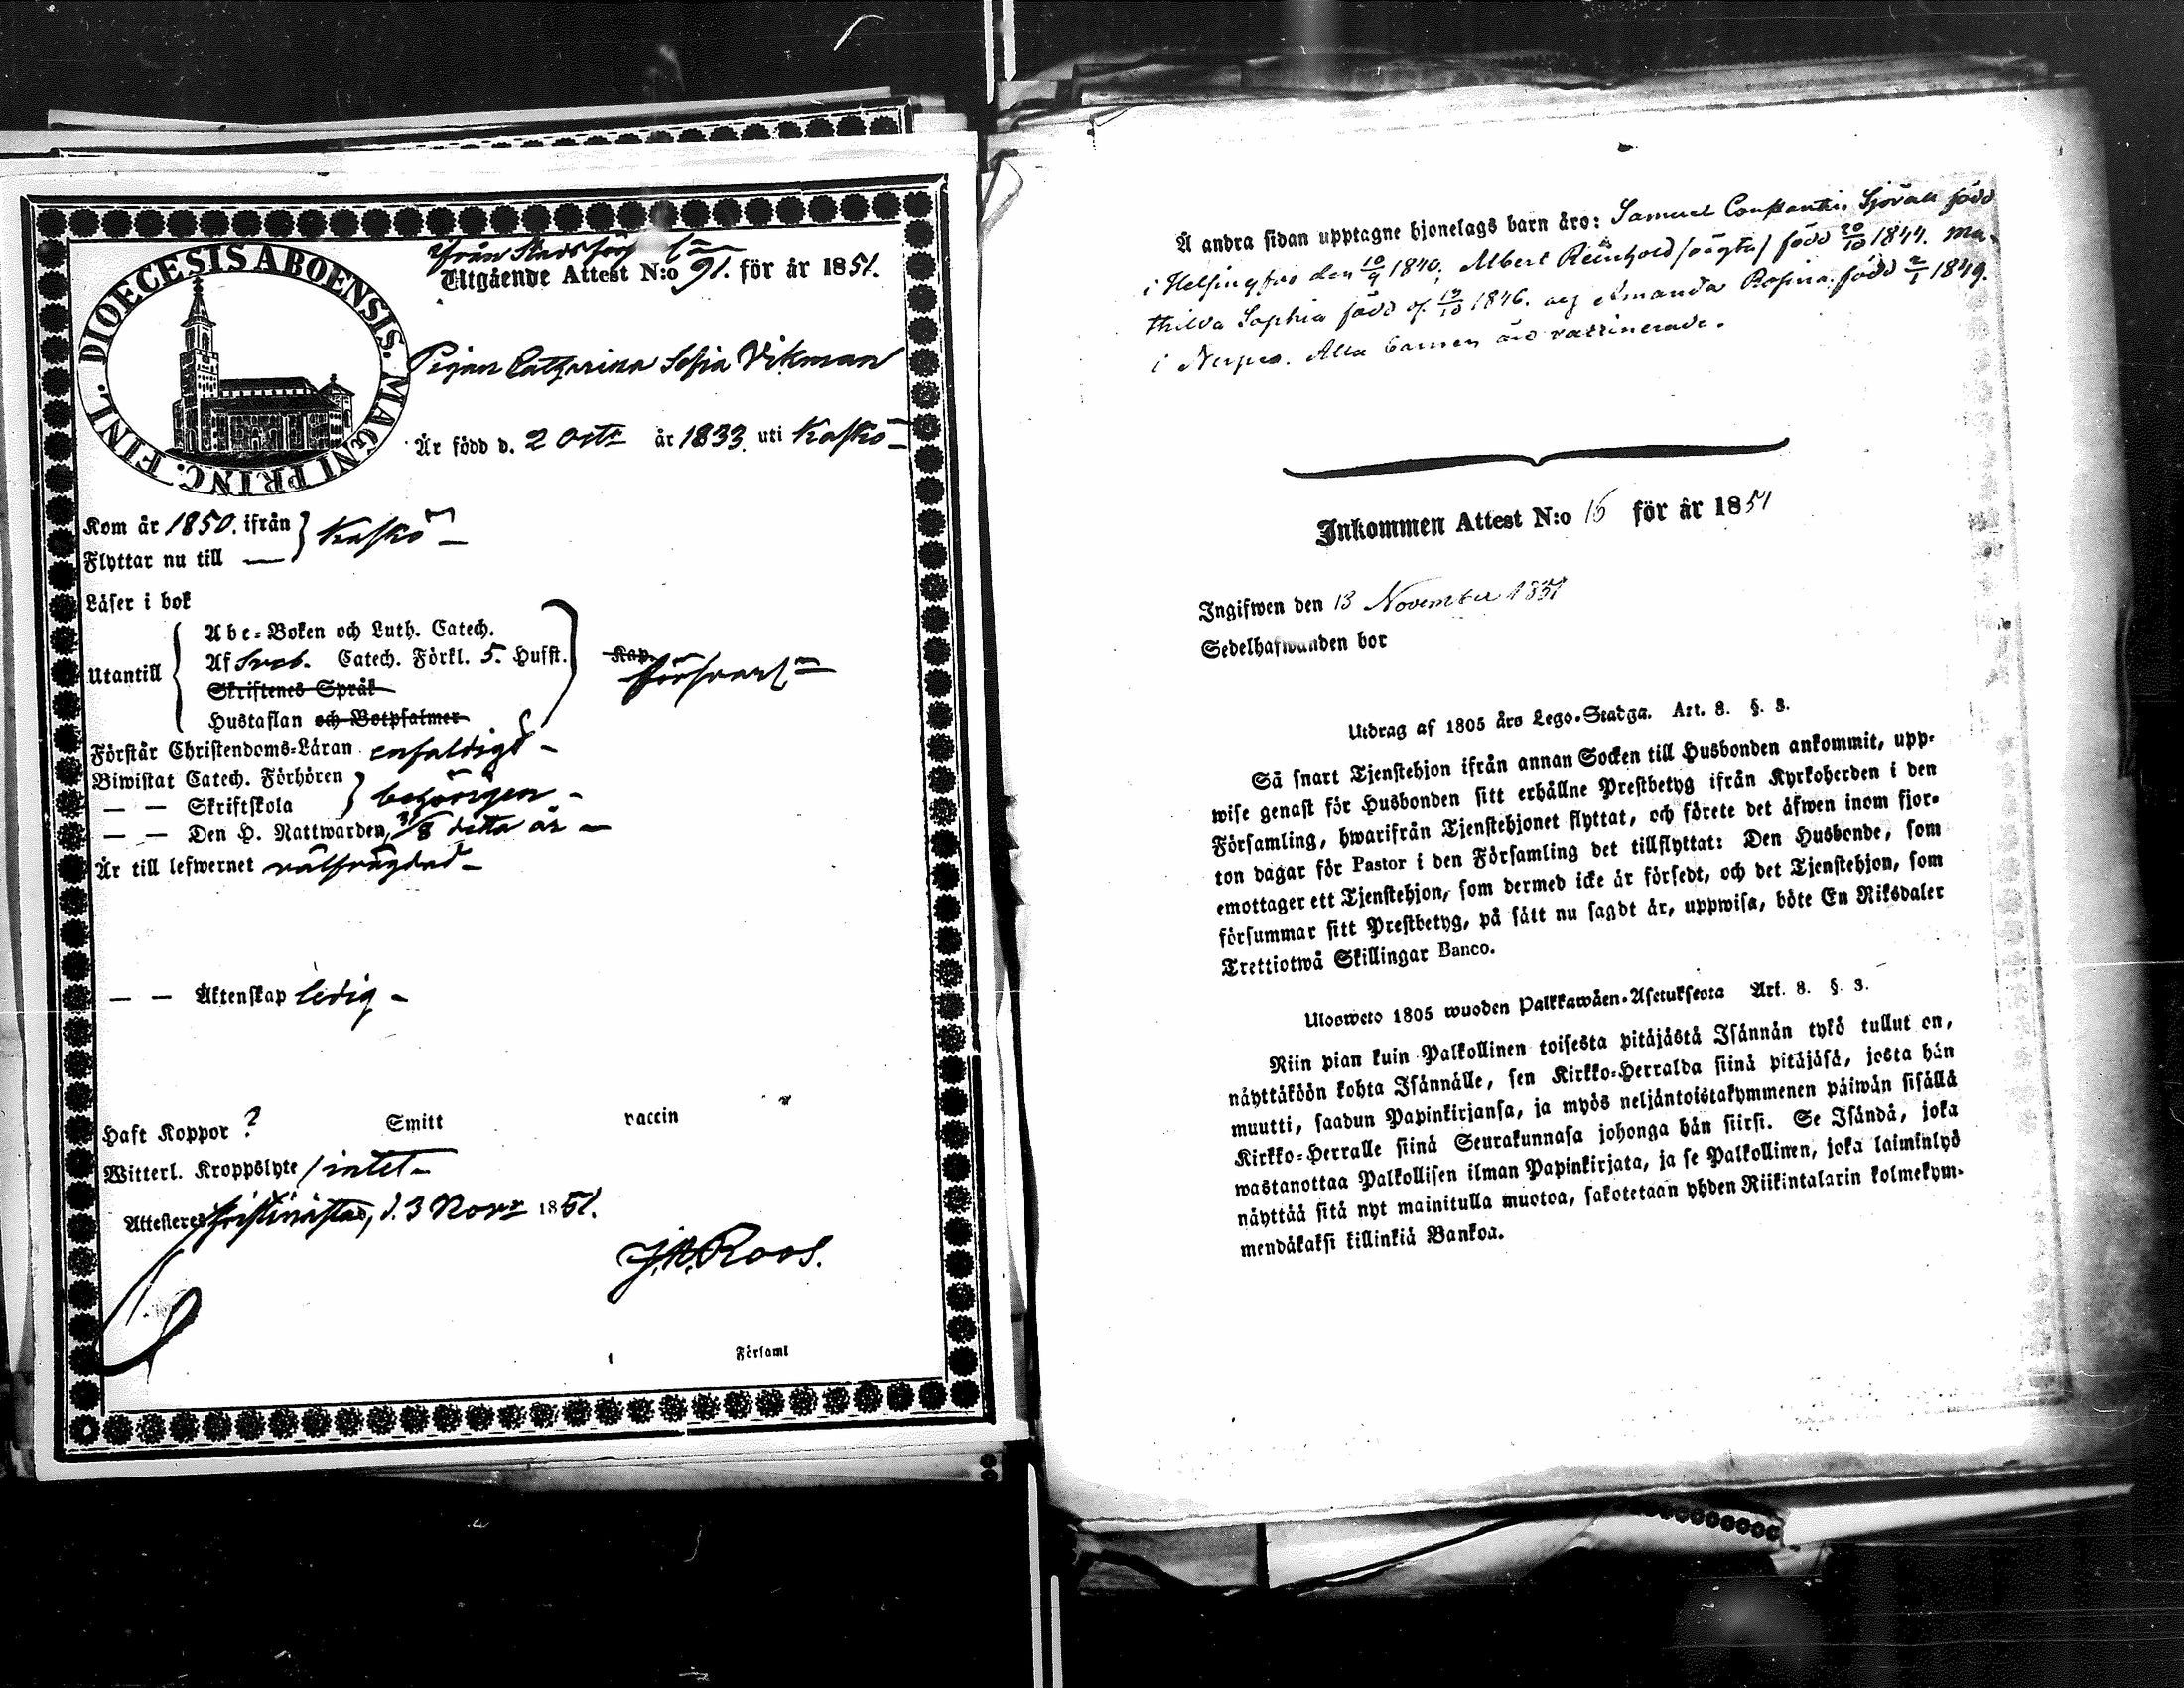 DIOECESIS ABOENSIS. MAGNI PRINC. FINL.
Ifrån
Utgående Attest N:o 91. för år 1851.
Pigan Catharina Sofia Vikman
Är född d. 2 Octr år 1833. uti Kaskö
Kom år 1850. ifrån } Kaskö
Flyttar nu till —
Läser i bok
Utantill
Abc-Boken och Luth. Catech.
Af Sveb. Catech. Förkl. 5. Hufst. Kap. försvarl
Skriftenes Språk
Hustaflan och Botpsalmer
Förstår Christendoms-Läran enfaldigt
Biwistat Catech. Förhören } behörigen
— — Skriftskola
— — Den H. Nattwarden, detta år
Är till lefwernet välfrägdad
— — Äktenskap ledig
Haft Koppor ? Smitt vaccin
Witterl. Kroppslyte / intet
Attesteres Kristinästad, d. 3 Novr 1851.
J.A. Roos.
i Församl
Å andra sidan upptagne hjonelags barn äro: Samuel Sjövall född
i Helsingfors den 10/9 1840, Albert Reinhold /oägta/ född 20/10 1844. Ma-
thilda Sophia född 1846. och Amanda Rosina född 2/1 1849.
i Nerpes. Alla barnen äro vaccinerade.
Inkommen Attest N:o 16 för år 1851
Ingifwen den 13 November 1851
Sedelhafwanden bor
Utdrag af 1805 års Lego-Stadga. Art. 8. §. 3.
Så snart Tjenstehjon ifrån annan Socken till Husbonden ankommit, upp-
wise genast för Husbonden sitt erhållne Prestbetyg ifrån Kyrkoherden i den
Församling, hwarifrån Tjenstehjonet flyttat, och förete det äfwen inom fjor-
ton dagar för Pastor i den Församling det tillflyttat: Den Husbonde, som
emottager ett Tjenstehjon, som dermed icke är försedt, och det Tjenstehjon, som
försummar sitt Prestbetyg, på sätt nu sagdt är, uppwisa, böte En Riksdaler
Trettiotwå Skillingar Banco.
Ulosweto 1805 wuoden Palkkawäen-Asetuksesta Art. 8. §. 3.
Niin pian kuin Palkollinen toisesta pitäjästä Isännän tykö tullut on,
näyttäköön kohta Isännälle, sen Kirkko-Herralda siinä pitäjäsä, josta hän
muutti, saadun Papinkirjansa, ja myös neljäntoistakymmenen päiwän sisällä
Kirkko-Herralle siinä Seurakunnasa johonga hän siirsi. Se Isändä, joka
wastanottaa Palkollisen ilman Papinkirjata, ja se Palkollinen, joka laiminlyö
näyttää sitä nyt mainitulla muotoa, sakotetaan yhden Riikintalarin kolmekym-
mendäkaksi killinkiä Bankoa.